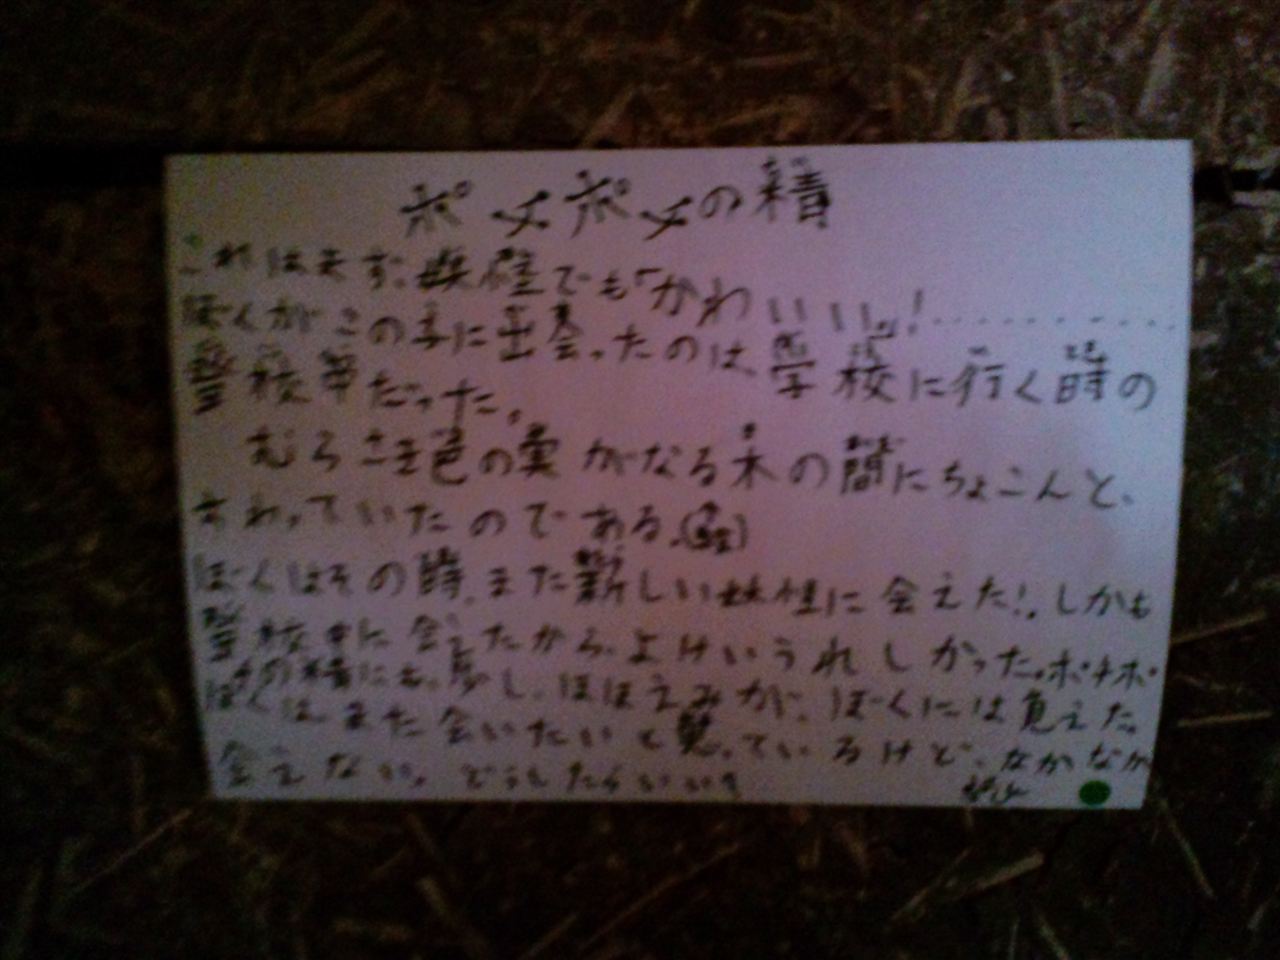 ポチポチの精
これはまず、妖怪でも「かわいい」!
ぼくがこの子に出会ったのは、学校に行く時の
登校中だった。
むらさき色の実がなる木の間にちょこんと、
すわっていたのである。
ぼくはその時、また新しい妖怪に会えた!、しかも
登校中に会えたから、よけいうれしかった。ポチポ
チの精にも、少し、ほほえみが、ぼくには見えた。
ぼくはまた会いたいと思っているけど、なかなか
会えない。どうしたらいい?